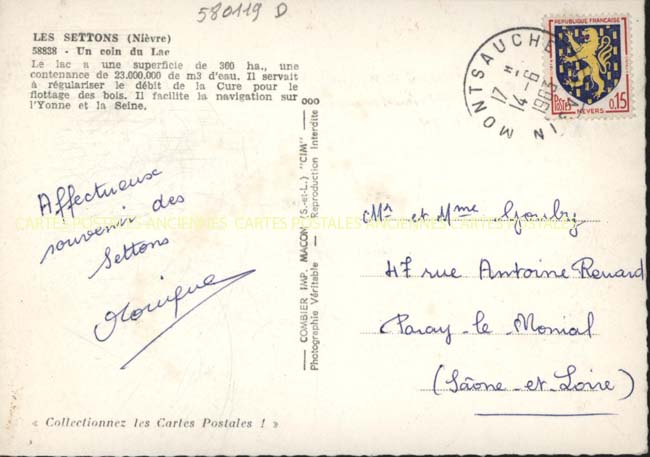 580119 D
LES SETTONS (Nièvre)
58838 - Un coin du Lac
Le lac a une superficie de 360 ha., une
contenance de 23.000.000 de m3 d'eau. Il servait
à régulariser le débit de la Cure pour le
flottage des bois. Il facilite la navigation sur
l'Yonne et la Seine.
Affectueux
souvenir des
Settons
Monique
« Collectionnez les Cartes Postales ! »
COMBIER IMP. MACON (S.-et-L.) "CIM"
Photographie Véritable - Reproduction Interdite
MONTSAUCHE
17 H
14 - 6
1963
REPUBLIQUE FRANÇAISE
Postes
0,15
NEVERS
Mr et Mme
47 rue Antoine Renard
Paray-le Monial
(Saône-et-Loire)
CARTES POSTALES ANCIENNES CARTES POSTALES ANCIENNES CARTES POSTALES